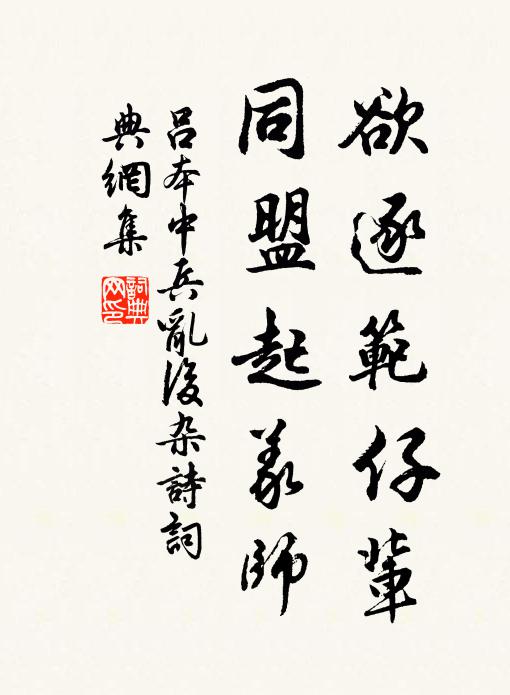 欲逐範仔輩
同盟起義師
呂本中兵亂後杂詩詞
典網集
詞典網印